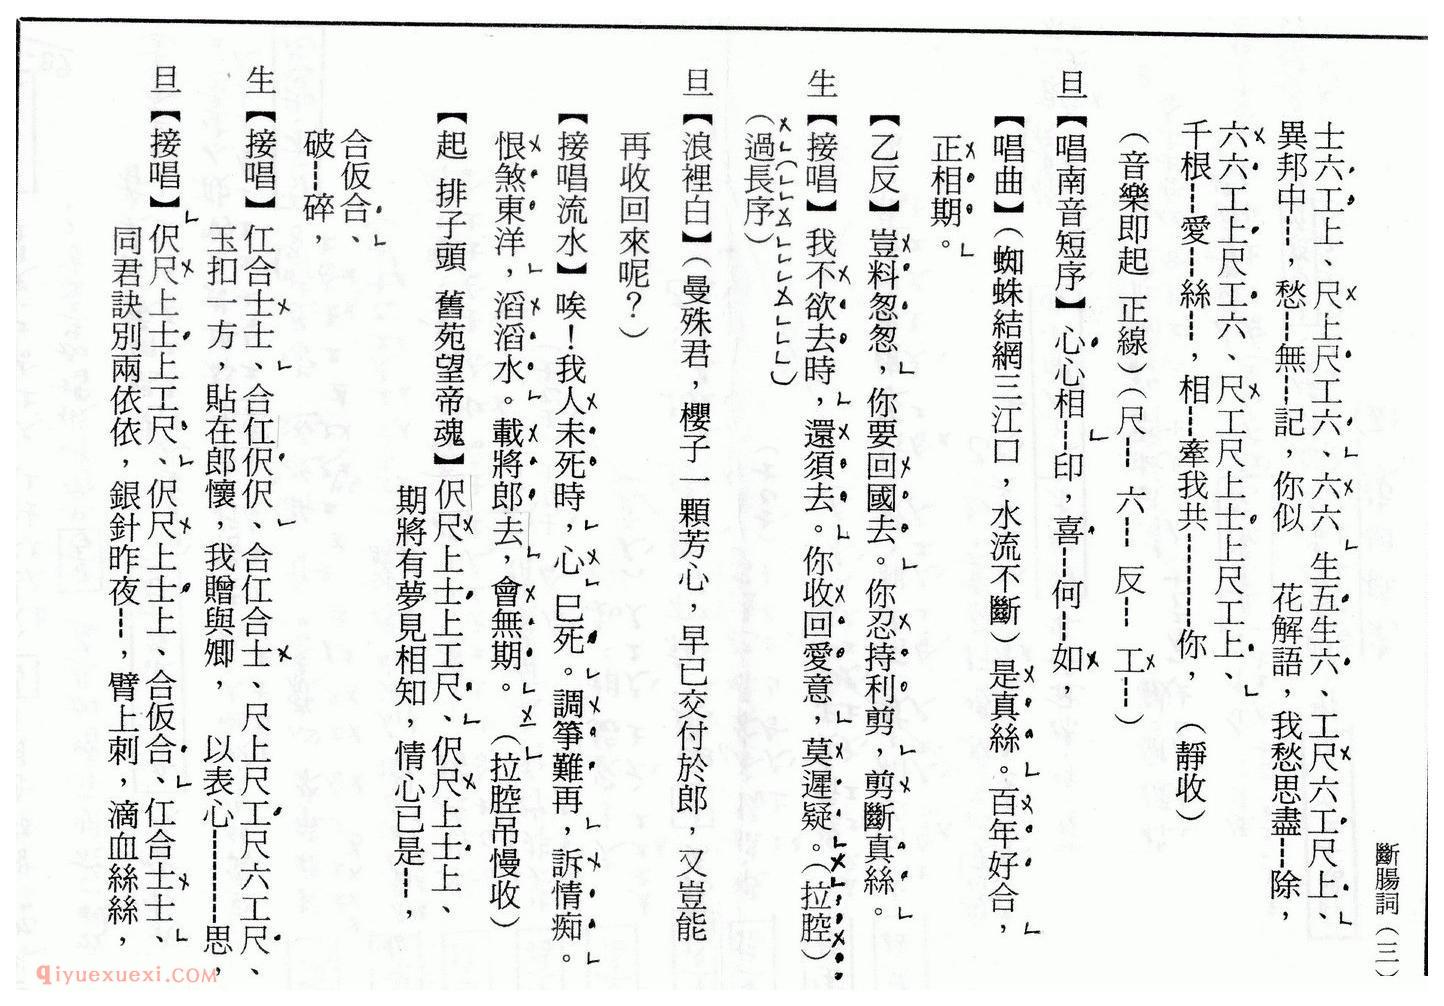 斷腸詞（三）
士六工上、尺上尺工六、六六 生五生六、工尺六工尺上、
異邦中┅，愁┅無┅記，你似 花解語，我愁思盡┅除，
六六工上尺工六、尺工尺上士上尺工上、
千根┅愛┅絲┅，相┅牽我共┅┅┅你， （靜收）
（音樂即起 正線）（尺┅ 六┅ 反┅ 工┅）
旦【唱南音短序】心心相┅印，喜┅何┅如，
【唱曲】（蜘蛛結網三江口，水流不斷）是真絲。百年好合，
正相期。
【乙反】豈料怱怱，你要回國去。你忍持利剪，剪斷真絲。
生【接唱】我不欲去時，還須去。你收回愛意，莫遲疑。（拉腔）
（過長序）
旦【浪裡白】（曼殊君，櫻子一顆芳心，早已交付於郎，又豈能
再收回來呢？）
【接唱流水】唉！我人未死時，心已死。調箏難再，訴情痴。
恨煞東洋，滔滔水。載將郎去，會無期。（拉腔吊慢收）
【起 排子頭 舊苑望帝魂】伬尺上士上工尺、伬尺上士上、
期將有夢見相知，情心已是┅，
合仮合、
破┅碎，
生【接唱】仜合士士、合仜伬伬、合仜合士、尺上尺工尺六工尺、
玉扣一方，貼在郎懷，我贈與卿， 以表心┅┅┅思，
旦【接唱】伬尺上士上工尺、伬尺上士上、合仮合、仜合士士、
同君訣別兩依依，銀針昨夜┅，臂上刺，滴血絲絲，
qiyuexuexi.COM